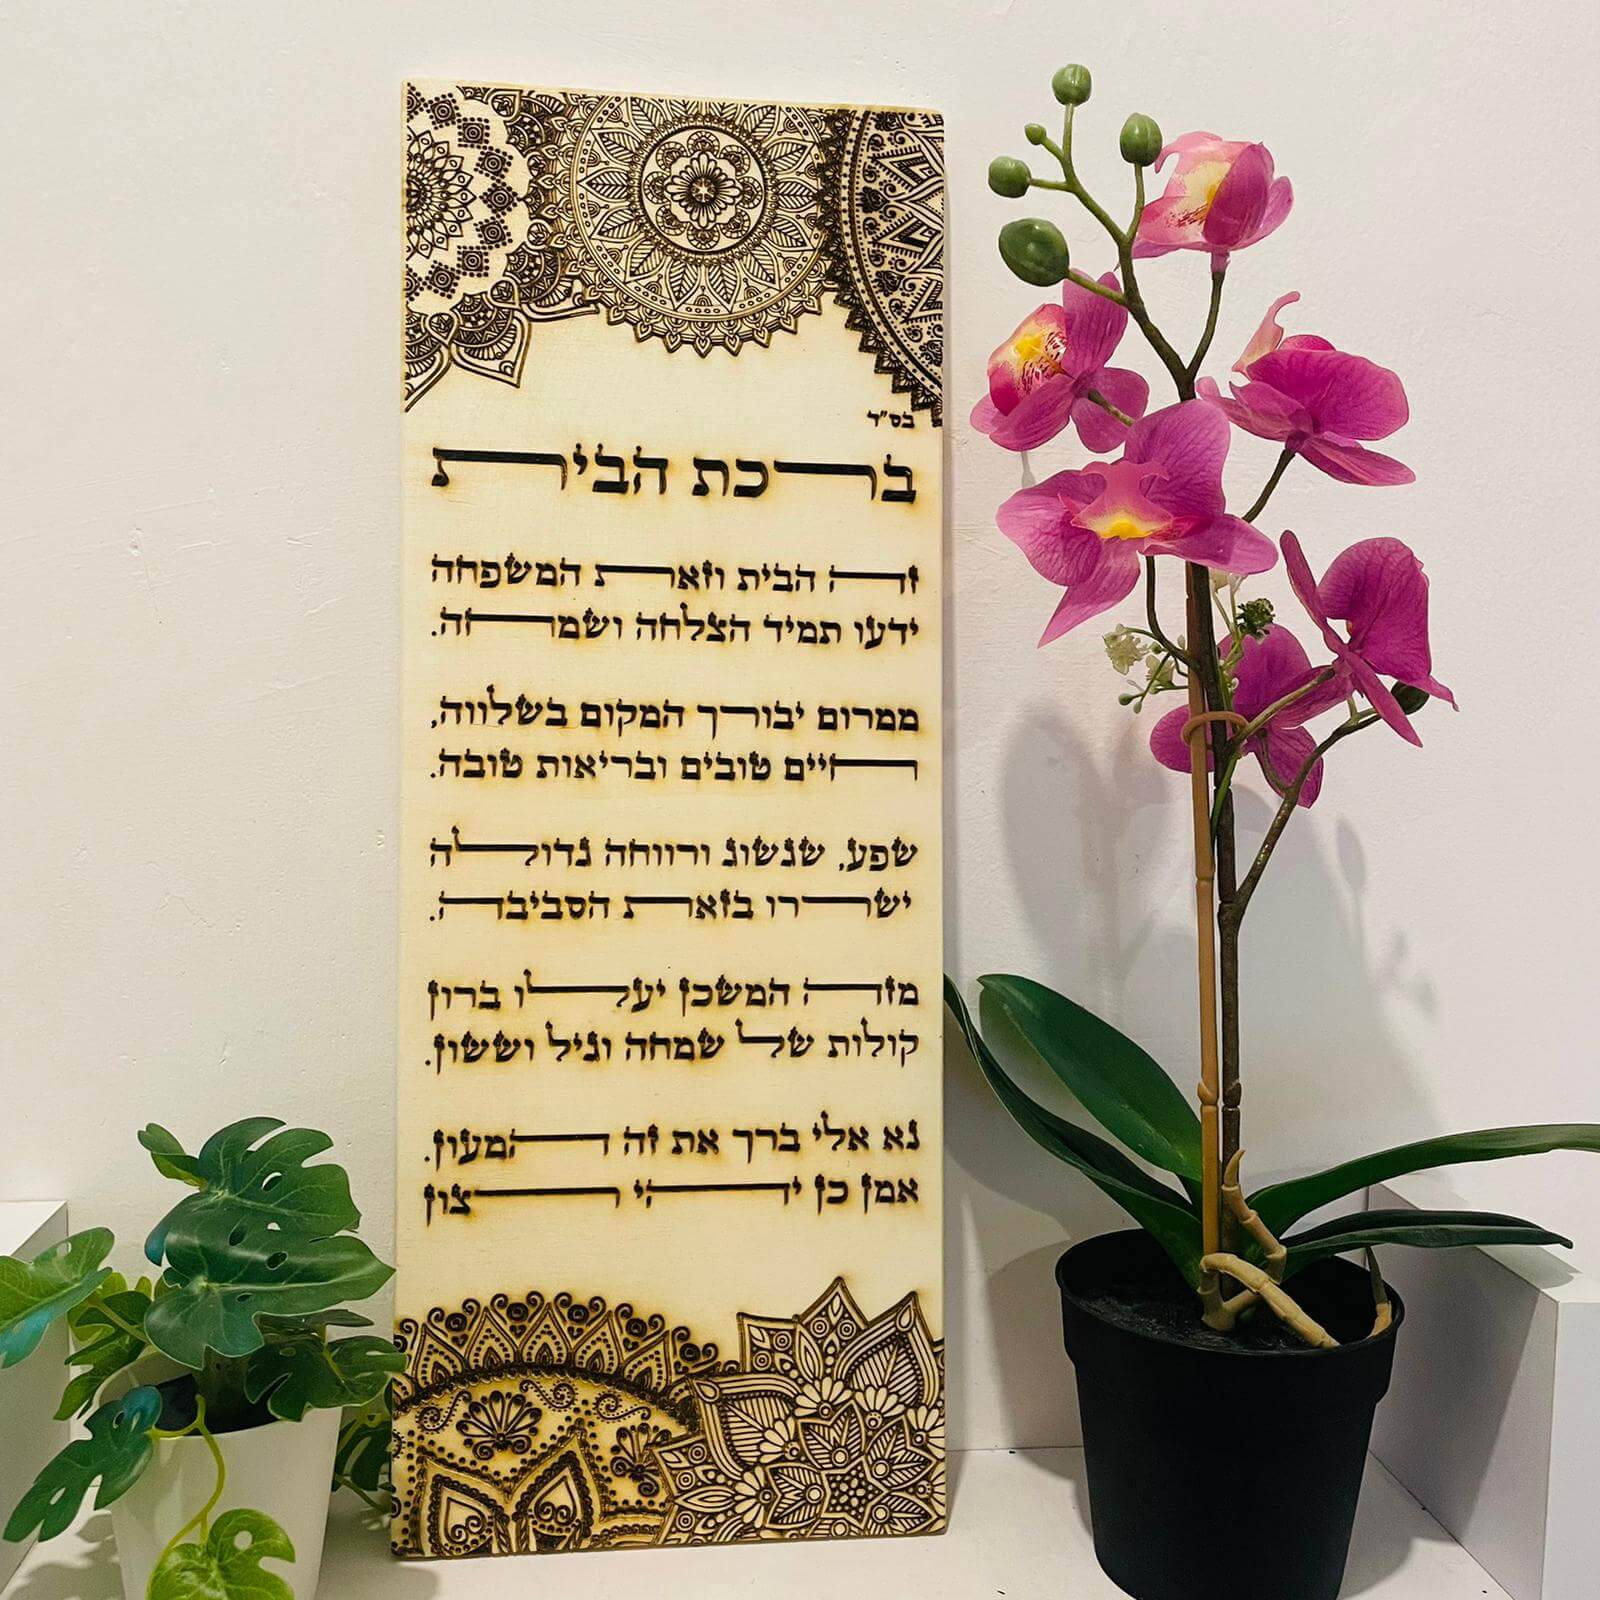 בס"ד
ברכת הבית
זה הבית וזאת המשפחה
ידעו תמיד הצלחה ושמחה.
ממרום יבורך המקום בשלווה,
חיים טובים ובריאות טובה.
שפע, שגשוג ורווחה גדולה
ישררו בזאת הסביבה.
מזה המשכן יעלו ברון
קולות של שמחה וגיל וששון.
נא אלי ברך את זה המעון.
אמן כן יהי רצון